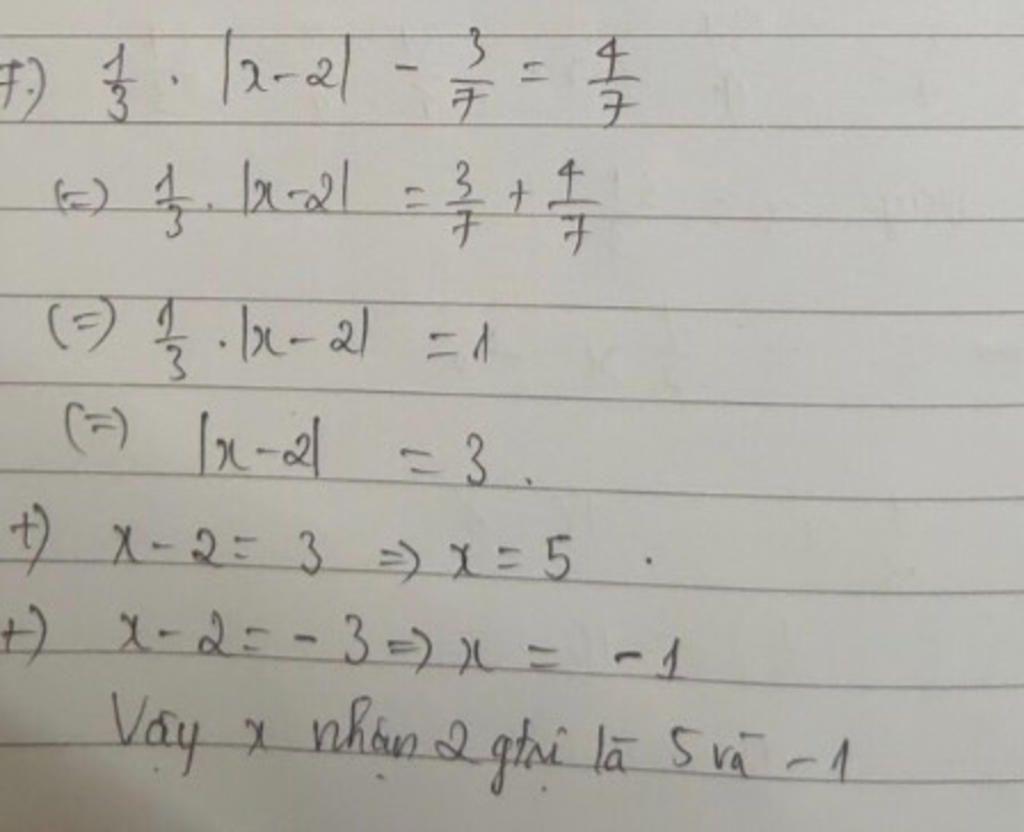 7.) 1/3 . |x-2| - 3/7 = 4/7
(=) 1/3 . |x-2| = 3/7 + 4/7
(=) 1/3 . |x-2| = 1
(=) |x-2| = 3.
+) x-2 = 3 => x = 5.
+) x-2 = -3 => x = -1
Vậy x nhận 2 gtrị là 5 và -1